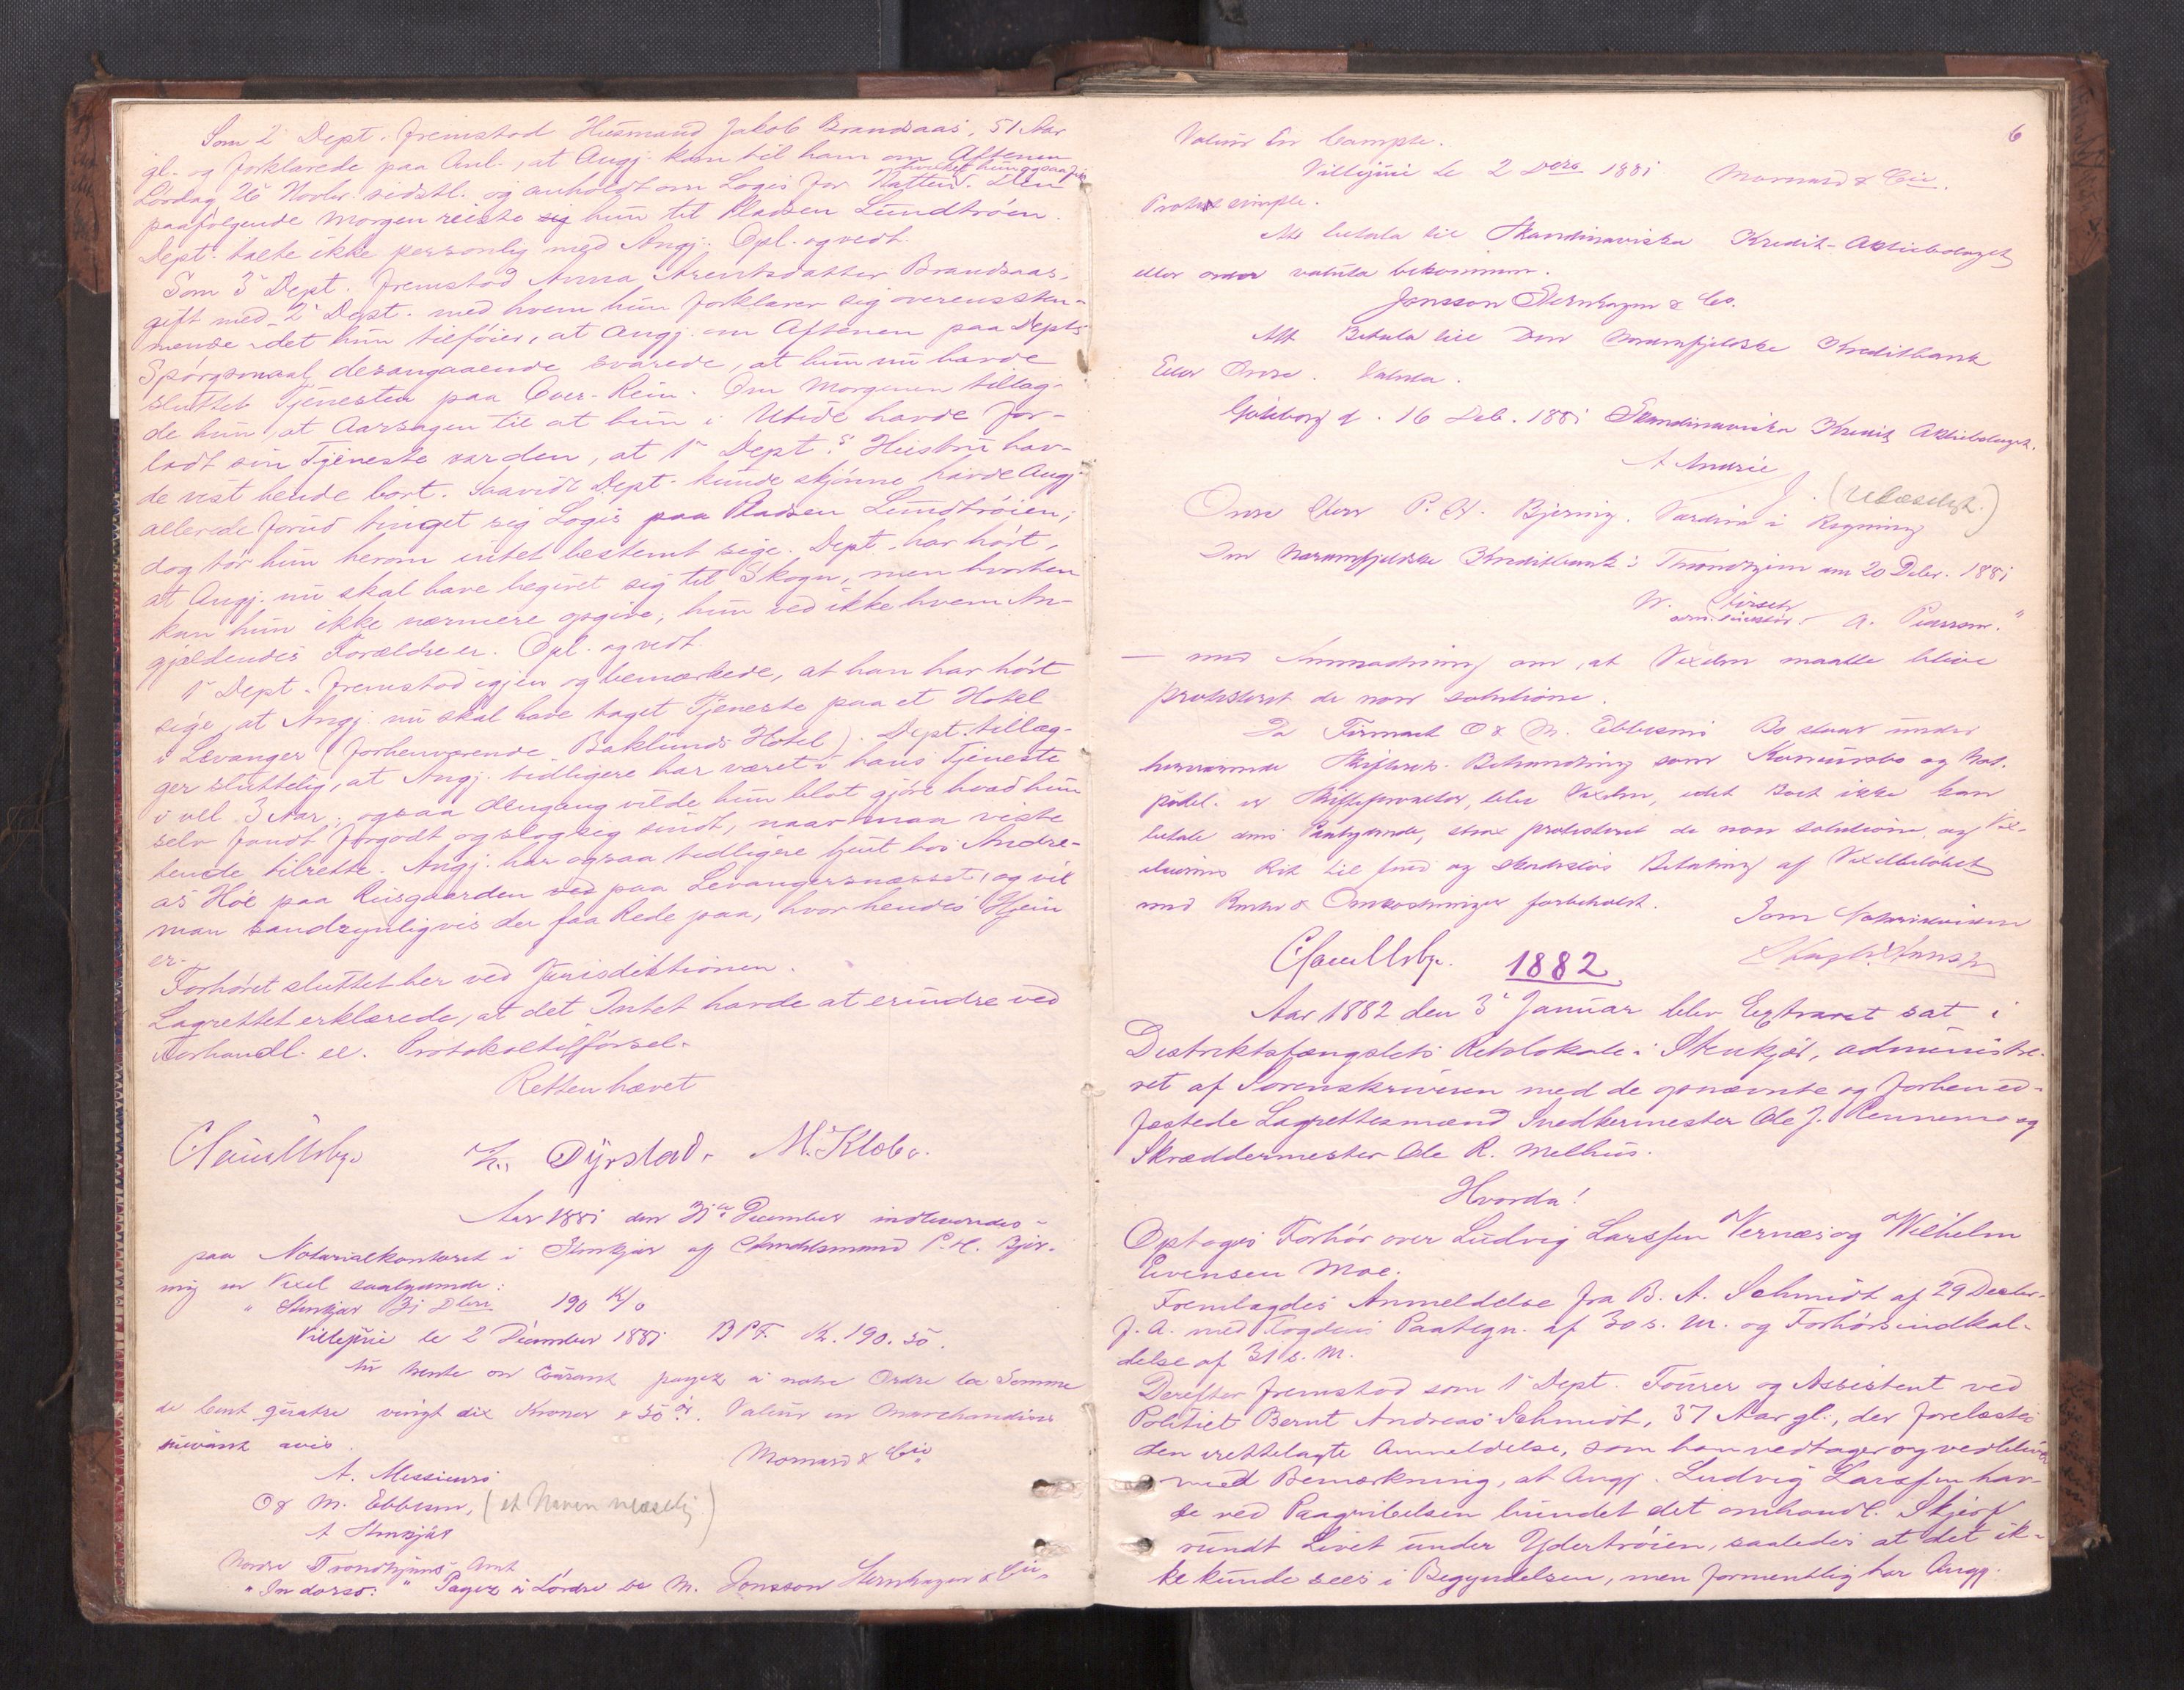 Som 2' Dept. fremstod Husmand Jakob Brandsaas, 51 Aar
gl. og forklarede paa Anl., at Angj. kom til ham om Aftenen
Lördag 26' Novbr. sidstl. og anholdt om Logis for Natten, hvilket hun ogsaa fik. Den
paafölgende Morgen reiste sig hun til Pladsen Lundtröen.
Dept. talte ikke personlig med Angj. Opl. og vedt.
Som 3' Dept. fremstod Anna Arentsdatter Brandsaas,
gift med 2' Dept. med hvem hun forklarer sig overensstem-
mende idet hun tilföier, at Angj. om Aftenen paa Depts
Spörgsmaal desangaaende svarede, at hun nu havde
sluttet Tjenesten paa Over-Rein. Om Morgenen tillag-
de hun, at Aarsagen til at hun i Utide havde for-
ladt sin Tjeneste var den, at 1' Dept.s Hustru hav-
de vist hende bort. Saavidt Dept. kunde skjönne havde Angj.
allerede forud tinget sig Logis paa Pladsen Lundtröien;
dog tör hun herom intet bestemt sige. Dept. har hört,
at Angj. nu skal have begivet sig til Skogn, men hvorhen
kan hun ikke nærmere opgive; hun ved ikke hvem An-
gjældendes Forældre er. Opl. og vedt.
1' Dept. fremstod igjen og bemærkede, at han har hört
sige, at Angj. nu skal have taget Tjeneste paa et Hotel
i Levanger (forhenværende Baklunds Hotel). Dept. tillæg-
ger sluttelig, at Angj. tidligere har været i hans Tjeneste
i vel 3 Aar; ogsaa dengang vilde hun blot gjöre hvad hun
selv fandt forgodt og slog sig sindt, naar man viste
hende tilrette. Angj. har ogsaa tidligere tjent hos Andre-
as Höe paa Ruisgaarden ved paa Levangersnæsset, og vil
man sandsynligvis der faa Rede paa, hvor hendes Hjem
er.
Forhöret sluttet her ved Jurisdiktionen.
Lagrettet erklærede, at det Intet havde at erindre ved
Forhandl. el. Protokoltilförsel.
Retten hævet
Dyrstad. M. Klobo.
Aar 1881 den 31te December indleveredes
paa Notarialkontoret i Stenkjær af Handelsmand P. H. Bjer-
ing en Vexel saalydende:
" Stenkjær 31 Dbre " 190 K/o
Villejuie le 2 Décember 1881 BPF. Kr. 190.50.
Au trente on Courant payez à notre Ordre la Somme
de Cent quatre vingt dix Kroner & 50 ör. Valeur en Marchandises
suivant avis.
Mornard & Cie
A. Messieurs
O & M. Ebbesen, (et Navn ulæselig)
A Stenkjær
Nordre Trondhjems Amt
" In dorso: " Payez à L'ordre de M. Jonsson Sternhagen & Cie.
6
Valeur En Compte.
Villejuie le 2 Dcre 1881 Mornard & Cie.
Protest simple.
Att betala till Skandinaviska Kredit-Aktiebolaget
eller order valuta bekommen.
Jonsson Sternhagen & Co.
Att Betala till Den Nordenfjeldske Kreditbank
Eller Ordre. Valuta.
Göteborg d. 16 Deb. 1881 Skandinaviska Kredit Aktiebolaget.
A Andrie
J. (Ulæseligt.)
Ordre Herr P. H. Bjering. Værdien i Regning
Den Nordenfjeldske Kreditbank: Trondhjem den 20 Debr. 1881
W. Hirsch A. Pedersen."
adm. direktör.
— med Anmodning om, at Vexlen maatte blive
protesteret de non solutione.
Da Firmaet O & M. Ebbesens Bo staar under
herværende Skifterets Behandling som Konkursbo og Not.
publ. er Skifteforvalter, blev Vexlen, idet Boet ikke kan
betale dens Paalydende, strax protesteret de non solutione og Vex-
eleierens Ret til fuld og skadeslös Betaling af Vexelbelöbet
med Renter & Omkostninger forbeholdt.
1882
Aar 1882 den 3' Januar blev Extraret sat i
Distriktsfængslets Retslokale i Stenkjær, administre-
ret af Sorenskriveren med de opnævnte og forhen ed-
fæstede Lagrettesmænd Snedkermester Ole J. Rennemo og
Skræddermester Ole R. Melhus.
Hvorda!
Optoges Forhör over Ludvig Larssen Vernæs og Wilhelm
Evensen Moe.
Fremlagdes Anmeldelse fra B. A. Schmidt af 29 Decbr.
f. A. med Fogdens Paategn. af 30 s. M. og Forhörsindkal-
delse af 31 s. M.
Derefter fremstod som 1' Dept. Fourer og Assistent ved
Politiet Bernt Andreas Schmidt, 37 Aar gl., der forelæstes
den irettelagte Anmeldelse, som han vedtager og vedbliver
med Bemærkning, at Angj. Ludvig Larssen hav-
de ved Paagribelsen bundet det omhandl. Skjerf
rundt Livet under Ydertröien, saaledes at det ik-
ke kunde sees i Begyndelsen, men formentlig har Angj.